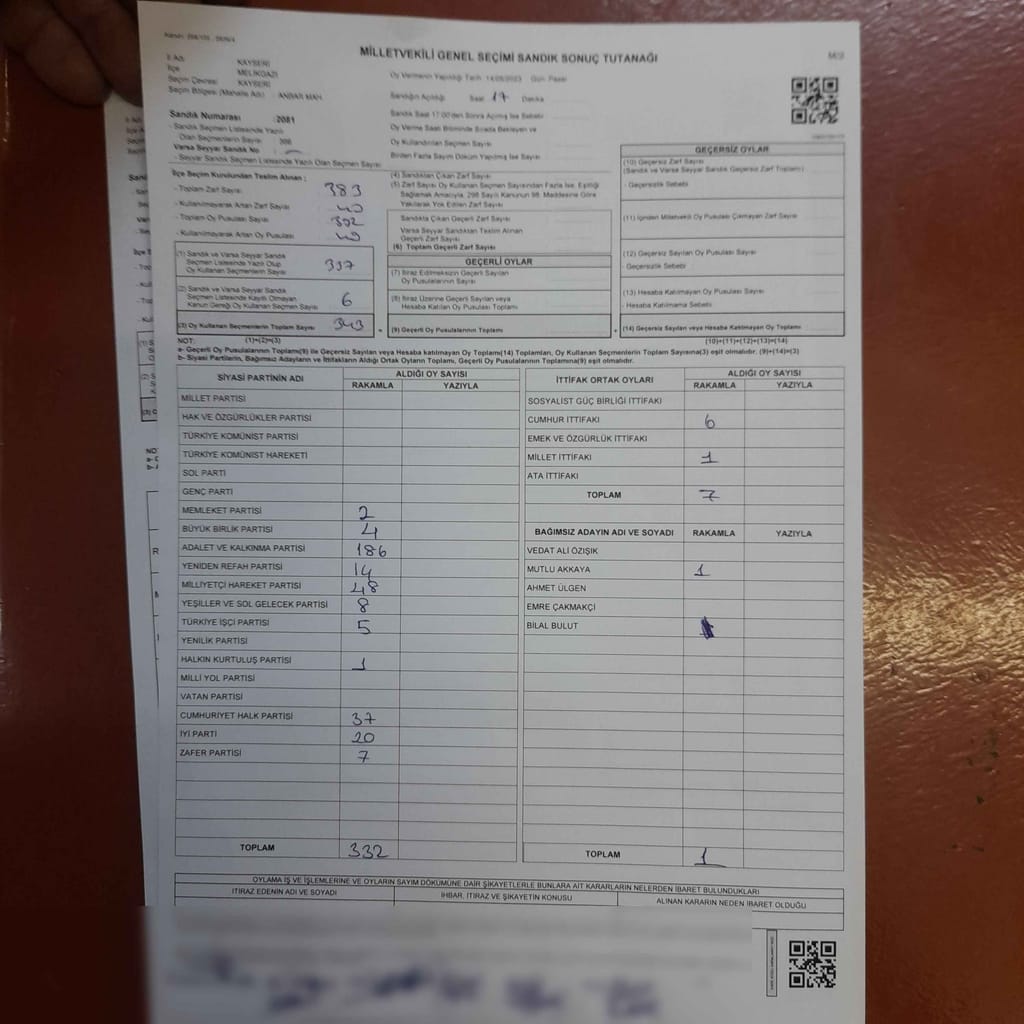 MİLLETVEKİLİ GENEL SEÇİMİ SANDIK SONUÇ TUTANAĞI
İl Adı KAYSERİ
İlçe MELİKGAZİ
Seçim Çevresi KAYSERİ
Seçim Bölgesi (Mahalle Adı) : ANBAR MAH.
Oy Vermenin Yapıldığı Tarih 14/05/2023 Gün Pazar
Sandığın Açıldığı Saat 17 Dakika
Sandık Numarası : 2081
- Sandık Seçmen Listesinde Yazılı
Olan Seçmenlerin Sayısı
Varsa Seyyar Sandık No
- Seyyar Sandık Seçmen Listesinde Yazılı Olan Seçmen Sayısı
Sandık Saat 17:00'den Sonra Açılmış İse Sebebi
Oy Verme Saati Bitiminde Sırada Bekleyen ve
Oy Kullandırılan Seçmen Sayısı
Birden Fazla Sayım Döküm Yapılmış İse Sayısı
İlçe Seçim Kurulundan Teslim Alınan ;
- Toplam Zarf Sayısı 383
- Kullanılmayarak Artan Zarf Sayısı 40
- Toplam Oy Pusulası Sayısı 392
- Kullanılmayarak Artan Oy Pusulası
(1) Sandık ve Varsa Seyyar Sandık
Seçmen Listesinde Yazılı Olup
Oy Kullanan Seçmenlerin Sayısı 337
(2) Sandık ve Varsa Seyyar Sandık
Seçmen Listesinde Kayıtlı Olmayan
Kanun Gereği Oy Kullanan Seçmenlerin Sayısı 6
(3) Oy Kullanan Seçmenlerin Toplam Sayısı 343
(4) Sandıktan Çıkan Zarf Sayısı
(5) Zarf Sayısı Oy Kullanan Seçmen Sayısından Fazla İse, Eşitliği
Sağlamak Amacıyla, 298 Sayılı Kanunun 98. Maddesine Göre
Yakılarak Yok Edilen Zarf Sayısı
Sandıkta Çıkan Geçerli Zarf Sayısı
Varsa Seyyar Sandıktan Teslim Alınan
Geçerli Zarf Sayısı
(6) Toplam Geçerli Zarf Sayısı
GEÇERLİ OYLAR
(7) İtiraz Edilmeksizin Geçerli Sayılan
Oy Pusulasının Sayısı
(8) İtiraz Üzerine Geçerli Sayılan veya
Hesaba Katılan Oy Pusulası Toplamı
(9) Geçerli Oy Pusulalarının Toplamı
GEÇERSİZ OYLAR
(10) Geçersiz Zarf Sayısı
(Sandık ve Varsa Seyyar Sandık Geçersiz Zarf Toplamı)
- Geçersizlik Sebebi
(11) İçinden Milletvekili Oy Pusulası Çıkmayan Zarf Sayısı
(12) Geçersiz Sayılan Oy Pusulası Sayısı
- Geçersizlik Sebebi
(13) Hesaba Katılmayan Oy Pusulası Sayısı
- Hesaba Katılmama Sebebi
(14) Geçersiz Sayılan veya Hesaba Katılmayan Oy Toplamı
NOT: (1)+(2)=(3) (10)+(11)+(12)+(13)=(14)
a- Geçerli Oy Pusulalarının Toplamı(9) ile Geçersiz Sayılan veya Hesaba katılmayan Oy Toplamı(14) Toplamları, Oy Kullanan Seçmenlerin Toplam Sayısına(3) eşit olmalıdır. (9)+(14)=(3)
b- Siyasi Partilerin, Bağımsız Adayların ve İttifakların Aldığı Ortak Oyların Toplamı, Geçerli Oy Pusulalarının Toplamına(9) eşit olmalıdır.
SİYASİ PARTİNİN ADI ALDIĞI OY SAYISI
RAKAMLA YAZIYLA
MİLLET PARTİSİ
HAK VE ÖZGÜRLÜKLER PARTİSİ
TÜRKİYE KOMÜNİST PARTİSİ
TÜRKİYE KOMÜNİST HAREKETİ
SOL PARTİ
GENÇ PARTİ
MEMLEKET PARTİSİ 2
BÜYÜK BİRLİK PARTİSİ 4
ADALET VE KALKINMA PARTİSİ 186
YENİDEN REFAH PARTİSİ 14
MİLLİYETÇİ HAREKET PARTİSİ 48
YEŞİLLER VE SOL GELECEK PARTİSİ 8
TÜRKİYE İŞÇİ PARTİSİ 5
YENİLİK PARTİSİ
HALKIN KURTULUŞ PARTİSİ 1
MİLLİ YOL PARTİSİ
VATAN PARTİSİ
CUMHURİYET HALK PARTİSİ 37
İYİ PARTİ 20
ZAFER PARTİSİ 7
TOPLAM 332
İTTİFAK ORTAK OYLARI ALDIĞI OY SAYISI
RAKAMLA YAZIYLA
SOSYALİST GÜÇ BİRLİĞİ İTTİFAKI
CUMHUR İTTİFAKI 6
EMEK VE ÖZGÜRLÜK İTTİFAKI
MİLLET İTTİFAKI 1
ATA İTTİFAKI
TOPLAM 7
BAĞIMSIZ ADAYIN ADI VE SOYADI RAKAMLA YAZIYLA
VEDAT ALİ ÖZIŞIK
MUTLU AKKAYA 1
AHMET ÜLGEN
EMRE ÇAKMAKÇİ
BİLAL BULUT
TOPLAM 1
OYLAMA İŞ VE İŞLEMLERİNE VE OYLARIN SAYIM DÖKÜMÜNE DAİR ŞİKAYETLERLE BUNLARA AİT KARARLARIN NELERDEN İBARET BULUNDUKLARI
İTİRAZ EDENİN ADI VE SOYADI İHBAR, İTİRAZ VE ŞİKAYETİN KONUSU ALINAN KARARIN NEDEN İBARET OLDUĞU